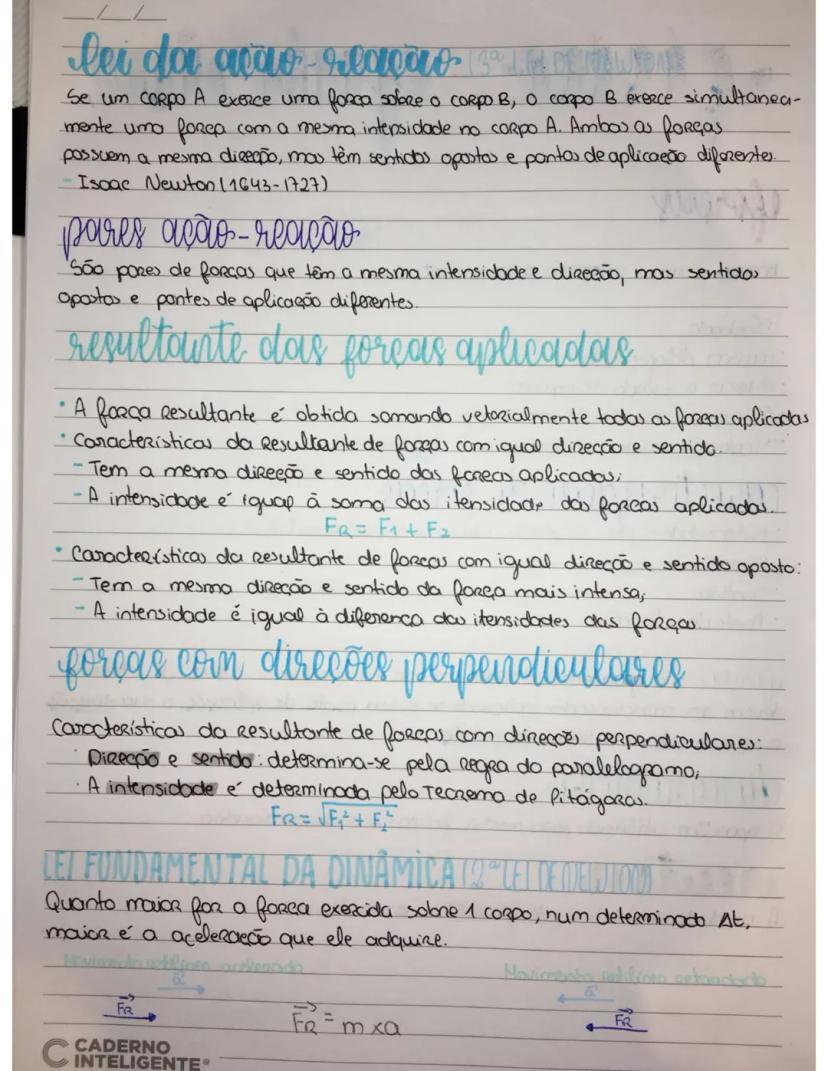 lei da ação-reação (3ª LEI DE NEWTON)
Se um corpo A exerce uma força sobre o corpo B, o corpo B exerce simultanea-
mente uma força com a mesma intensidade no corpo A. Ambas as forças
possuem a mesma direção, mas têm sentidos opostos e pontos de aplicação diferentes.
- Isaac Newton (1643-1727)
pares ação-reação
São pares de forças que têm a mesma intensidade e direção, mas sentidos
opostos e pontos de aplicação diferentes.
resultante das forças aplicadas
• A força resultante é obtida somando vetorialmente todas as forças aplicadas
• Características da resultante de forças com igual direção e sentido.
- Tem a mesma direção e sentido das forças aplicadas;
- A intensidade é igual à soma das itensidade das forças aplicadas.
FR = F1 + F2
• Características da resultante de forças com igual direção e sentido oposto:
- Tem a mesma direção e sentido da força mais intensa;
- A intensidade é igual à diferença das itensidades das forças.
forças com direções perpendiculares
Características da resultante de forças com direções perpendiculares:
· Direção e sentido: determina-se pela regra do paralelogramo;
· A intensidade é determinada pelo Teorema de Pitágoras.
FR = √F₁² + F₂²
LEI FUNDAMENTAL DA DINÂMICA (2ª LEI DE NEWTON)
Quanto maior for a força exercida sobre 1 corpo, num determinado Δt,
maior é a aceleração que ele adquire.
Movimento retilíneo acelerado Movimento retilíneo retardado
a⃗ a⃗
F⃗R F⃗R = m x a F⃗R
CADERNO
INTELIGENTE®